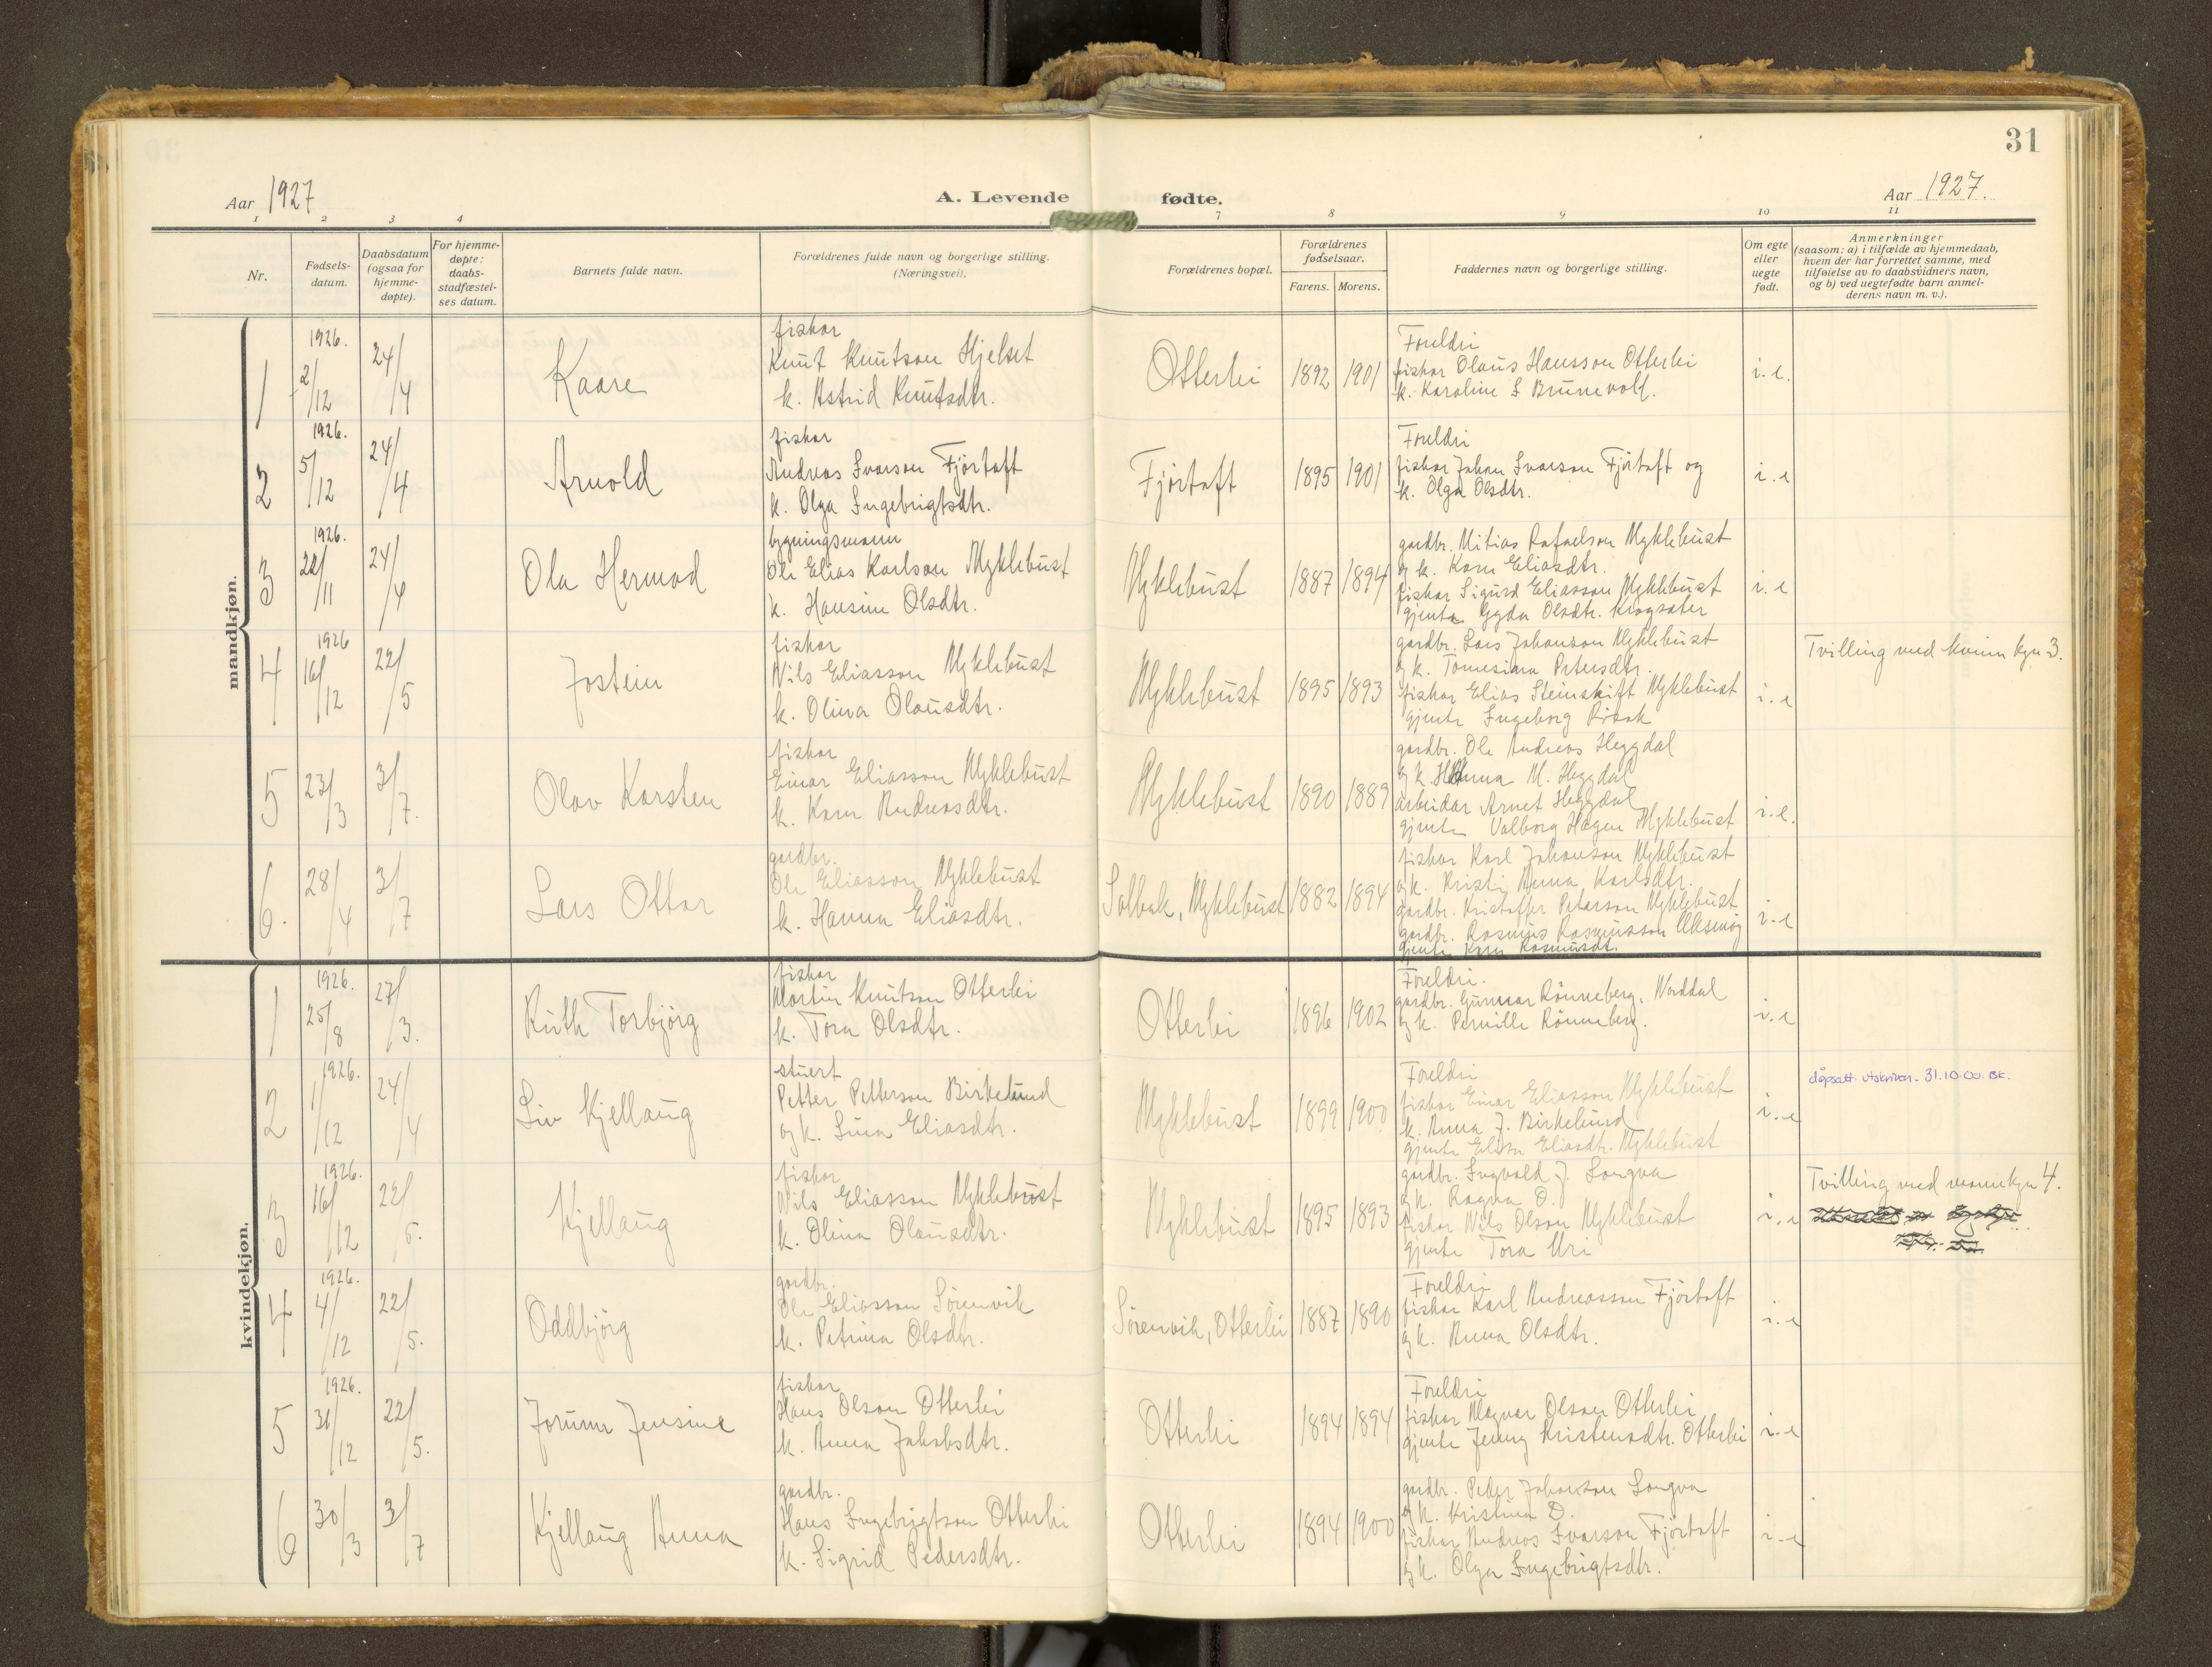 31
Aar 1927
A. Levende fødte.
Aar 1927.
1 2 3 4 7 8 9 10 11
Nr.
Fødsels-
datum.
Daabsdatum
(ogsaa for
hjemme-
døpte).
For hjemme-
døpte:
daabs-
stadfæstel-
ses datum.
Barnets fulde navn.
Forældrenes fulde navn og borgerlige stilling.
(Næringsvei).
Forældrenes bopæl.
Forældrenes
fødselsaar.
Farens. Morens.
Faddernes navn og borgerlige stilling.
Om egte
eller
uegte
født.
Anmerkninger
(saasom: a) i tilfælde av hjemmedaab,
hvem der har forrettet samme, med
tilføielse av to daabsvidners navn,
og b) ved uegtefødte barn anmel-
derens navn m. v.).
mandkjøn.
1
1926.
2/12
24/4
Kaare
fiskar
Knut Knutson Hjelset
k. Astrid Knutsdtr.
Otterlei
1892
1901
Foreldri
fiskar Olaus Hansson Otterlei
k. Karoline L Brunevoll.
i. e.
2
1926.
5/12
24/4
Arnold
fiskar
Andreas Ivarson Fjörtoft
k. Olga Ingebrigtsdtr.
Fjörtoft
1895
1901
Foreldri
fiskar Johan Ivarson Fjörtoft og
k. Olga Olsdtr.
i. e
3
1926.
22/11
24/4
Ola Hermod
bygningsmann
Ole Elias Karlson Myklebust
k. Hansine Olsdtr.
Myklebust
1887
1894
gardbr. Mitias Rafaelson Myklebust
og k. Karn Eliasdtr.
fiskar Sigurd Eliasson Myklebust
gjenta Gyda Olsdtr. Krogsæter
i. e
4
1926
16/12
22/5
Jostein
fiskar
Nils Eliasson Myklebust
k. Olina Olausdtr.
Myklebust
1895
1893
gardbr. Lars Johanson Myklebust
og k. Tomesina Petersdtr.
fiskar Elias Steinskift Myklebust
gjenta Ingeborg
i. e
Tvilling med kvinnkyn 3.
5
23/3
3/7.
Olav Karsten
fiskar
Einar Eliasson Myklebust
k. Karn Andreasdtr.
Myklebust
1890
1889
gardbr. Ole Andreas Heggdal
og k. Hanna M. Heggdal
arbeidar Arnet Heggdal
gjenta Valborg Hagen Myklebust
i. e.
6.
28/4
3/7
Lars Ottar
gardbr.
Ole Eliasson Myklebust
k. Hanna Eliasdtr.
Solbak, Myklebust
1882
1894
fiskar Karl Johanson Myklebust
og k. Kristi Anna Karlsdtr.
gardbr. Kristoffer Peterson Myklebust
gardbr. Rasmus Rasmusson Ulksnög
gjenta Karn Rasmusdt.
i. e
kvindekjøn.
1
1926.
25/8
27/3.
Ruth Torbjörg
fiskar
Martin Knutson Otterlei
k. Tora Olsdtr.
Otterlei
1896
1902
Foreldri.
gardbr. Gunnar Rönneberg, Norddal
og k. Pernille Rönneberg.
i. e
2
1926.
1/12
24/4
Liv Kjellaug
stuert
Petter Petterson Birkelund
og k. Lina Eliasdtr.
Myklebust
1899
1900
Foreldri
fiskar Einar Eliasson Myklebust
k. Anna J. Birkelund
gjenta Elisa Eliasdt. Myklebust
i. e
dåpsatt. utskriven. 31.10.00. BK.
3
1926.
16/12
22/5.
Kjellaug
fiskar
Nils Eliasson Myklebust
k. Olina Olausdtr.
Myklebust
1895
1893
gardbr. Ingvald J. Longva
og k. Ragna O.
fiskar Nils Olson Myklebust
gjenta Tora Uri
i. e
Tvilling med mannkyn 4.
4
1926.
4/12
22/5.
Oddbjörg
gardbr.
Ole Eliasson Sörenvik
k. Petrina Olsdtr.
Sörenvik, Otterlei
1887
1890
Foreldri
fiskar Karl Andreasson Fjörtoft
og k. Anna Olsdtr.
i. e
5
1926.
31/12
22/5.
Jorunn Jensine
fiskar
Hans Olson Otterlei
k. Anna Jakobsdtr.
Otterlei
1894
1894
Foreldri
fiskar Magnar Olson Otterlei
gjenta Jenny Kristensdtr. Otterlei
i. e
6
30/3
3/7
Kjellaug Anna
gardbr.
Hans Ingebrigtson Otterlei
k. Sigrid Pedersdtr.
Otterlei
1894
1900
gardbr. Peder Johanson Longva
og k. Kristina D.
fiskar Andreas Ivarson Fjörtoft
og k. Olga Ingebrigtsdtr.
i. e